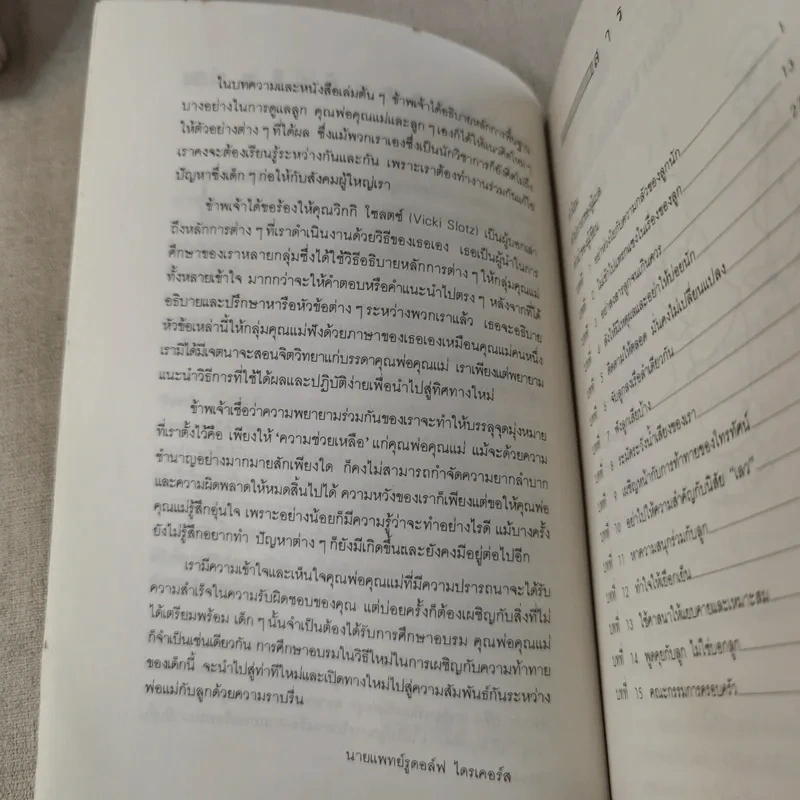 ในบทความและหนังสือเล่มต้น ๆ ข้าพเจ้าได้อธิบายหลักการพื้นฐาน
บางอย่างในการดูแลลูก คุณพ่อคุณแม่และลูก ๆ เองก็ได้ให้แนวคิดใหม่ ๆ
ให้ตัวอย่างต่าง ๆ ที่ได้ผล ซึ่งแม้พวกเราเองซึ่งเป็นนักวิชาการก็ยังคิดไม่ถึง
เราคงจะต้องเรียนรู้ระหว่างกันและกัน เพราะเราต้องทำงานร่วมกันแก้ไข
ปัญหาซึ่งเด็ก ๆ ก่อให้กับสังคมผู้ใหญ่เรา
ข้าพเจ้าได้ขอร้องให้คุณวิกกิ โซลตซ์ (Vicki Slotz) เป็นผู้บอกเล่า
ถึงหลักการต่าง ๆ ที่เราดำเนินงานด้วยวิธีของเธอเอง เธอเป็นผู้นำในการ
ศึกษาของเราหลายกลุ่มซึ่งได้ใช้วิธีอธิบายหลักการต่าง ๆ ให้กลุ่มคุณแม่
ทั้งหลายเข้าใจ มากกว่าจะให้คำตอบหรือคำแนะนำไปตรงๆ หลังจากที่ได้
อธิบายและปรึกษาหารือหัวข้อต่าง ๆ ระหว่างพวกเราแล้ว เธอจะอธิบาย
หัวข้อเหล่านี้ให้กลุ่มคุณแม่ฟังด้วยภาษาของเธอเองเหมือนคุณแม่คนหนึ่ง
เรามิได้มีเจตนาจะสอนจิตวิทยาแก่บรรดาคุณพ่อคุณแม่ เราเพียงแต่พยายาม
แนะนำวิธีการที่ใช้ได้ผลและปฏิบัติง่ายเพื่อนำไปสู่ทิศทางใหม่
ข้าพเจ้าเชื่อว่าความพยายามร่วมกันของเราจะทำให้บรรลุจุดมุ่งหมาย
ที่เราตั้งไว้คือ เพียงให้ ‘ความช่วยเหลือ’ แก่คุณพ่อคุณแม่ แม้จะด้วยความ
ชำนาญอย่างมากมายสักเพียงใด ก็คงไม่สามารถกำจัดความยากลำบาก
และความผิดพลาดให้หมดสิ้นไปได้ ความหวังของเราก็เพียงแต่ขอให้คุณพ่อ
คุณแม่รู้สึกอุ่นใจ เพราะอย่างน้อยก็มีความรู้ว่าจะทำอย่างไรดี แม้บางครั้ง
ยังไม่รู้สึกอยากทำ ปัญหาต่าง ๆ ก็ยังมีเกิดขึ้นและยังคงมีอยู่ต่อไปอีก
เรามีความเข้าใจและเห็นใจคุณพ่อคุณแม่ที่มีความปรารถนาจะได้รับ
ความสำเร็จในความรับผิดชอบของคุณ แต่บ่อยครั้งก็ต้องเผชิญกับสิ่งที่ไม่
ได้เตรียมพร้อม เด็ก ๆ นั้นจำเป็นต้องได้รับการศึกษาอบรม คุณพ่อคุณแม่
ก็จำเป็นเช่นเดียวกัน การศึกษาอบรมในวิธีใหม่ในการเผชิญกับความท้าทาย
ของเด็กนี้ จะนำไปสู่ท่าทีใหม่และเปิดทางใหม่ไปสู่ความสัมพันธ์กันระหว่าง
พ่อแม่กับลูกด้วยความราบรื่น
นายแพทย์รูดอล์ฟ ไดรเคอร์ส
สาร
1
13
บทที่ 1 อย่ากังวลกับความกลัวของลูกนัก
บทที่ 2 ไม่เข้าไปแทรกแซงในเรื่องของลูก
บทที่ 3 อย่าสงสารลูกจนเกินควร
บทที่ 4 สั่งให้มีเหตุผลและอย่าให้บ่อยนัก
บทที่ 5 ติดตามให้ตลอด มั่นคงไม่เปลี่ยนแปลง
บทที่ 6 จับลูกลงเรือลำเดียวกัน
บทที่ 7 ฟังลูกเสียบ้าง
บทที่ 8 ระมัดระวังน้ำเสียงของเรา
บทที่ 9 เผชิญหน้ากับการท้าทายของโทรทัศน์
บทที่ 10 อย่าไปให้ความสำคัญกับนิสัย “เลว”
บทที่ 11 หาความสนุกร่วมกับลูก
บทที่ 12 ทำใจให้เยือกเย็น
บทที่ 13 ใช้ศาสนาให้แยบคายและเหมาะสม
บทที่ 14 พูดคุยกับลูก ไม่ใช่บอกลูก
บทที่ 15 คณะกรรมการครอบครัว